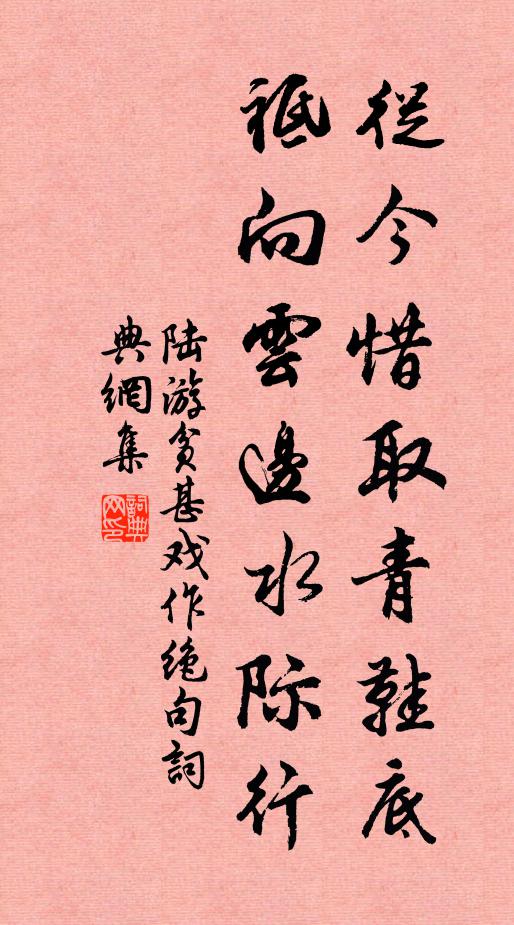 從今惜取青鞋底
祗向雲邊水际行
陆游贫甚戏作绝句詞
典網集
詞典网印